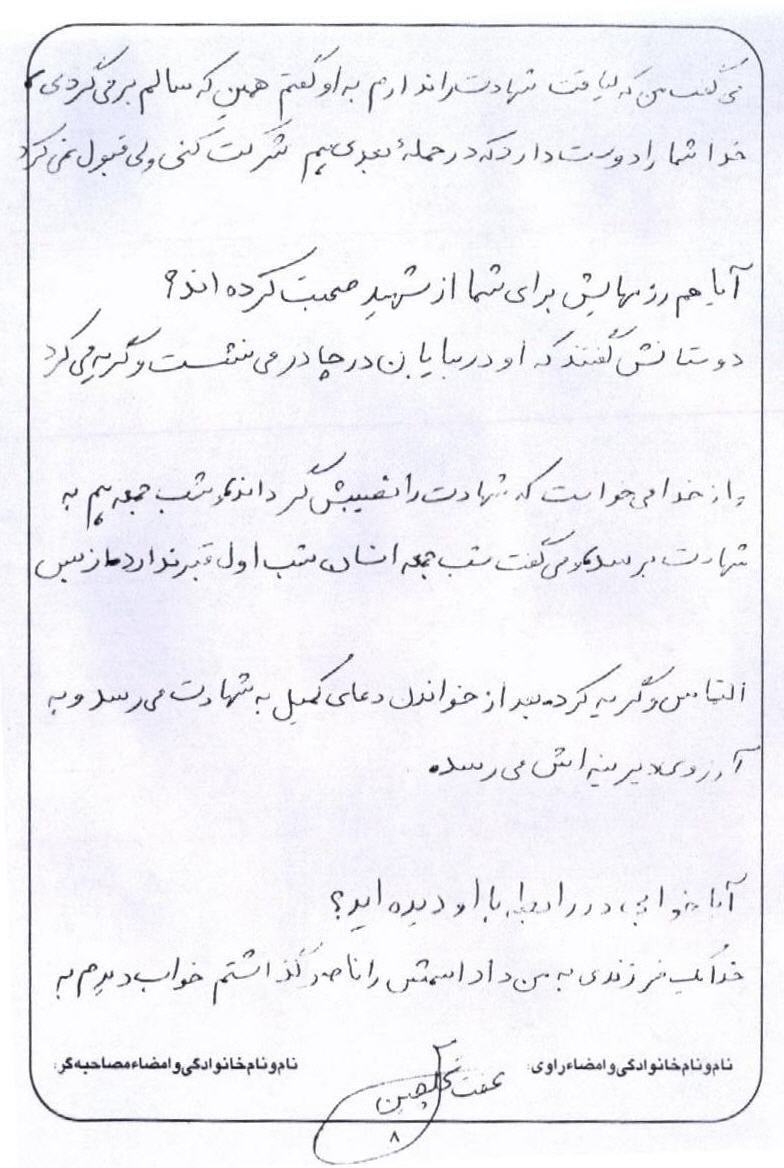 می گفت من که لیاقت شهادت را ندارم به او گفتم همین که سالم برمی گردی
خدا شما را دوست دارد که در حملهٔ بعدی هم شرکت کنی ولی قبول نمی کرد
آیا هم رزمهایش برای شما از شهید صحبت کرده اند؟
دوستانش گفتند که او در بیابان در چادر می نشست و گریه می کرد
و از خدا می خواست که شهادت را نصیبش گرداند و شب جمعه هم به
شهادت برسد و می گفت شب جمعه انسان شب اول قبر ندارد از بس
التماس و گریه کرده بعد از خواندن دعای کمیل به شهادت می رسد و به
آرزوی دیرینه اش می رسد.
آیا خوابی در رابطه با او دیده اید؟
خدا یک فرزندی به من داد اسمش را ناصر گذاشتم خواب دیدم به
نام و نام خانوادگی و امضاء راوی:
عفت گلچین
نام و نام خانوادگی و امضاء مصاحبه گر:
۸